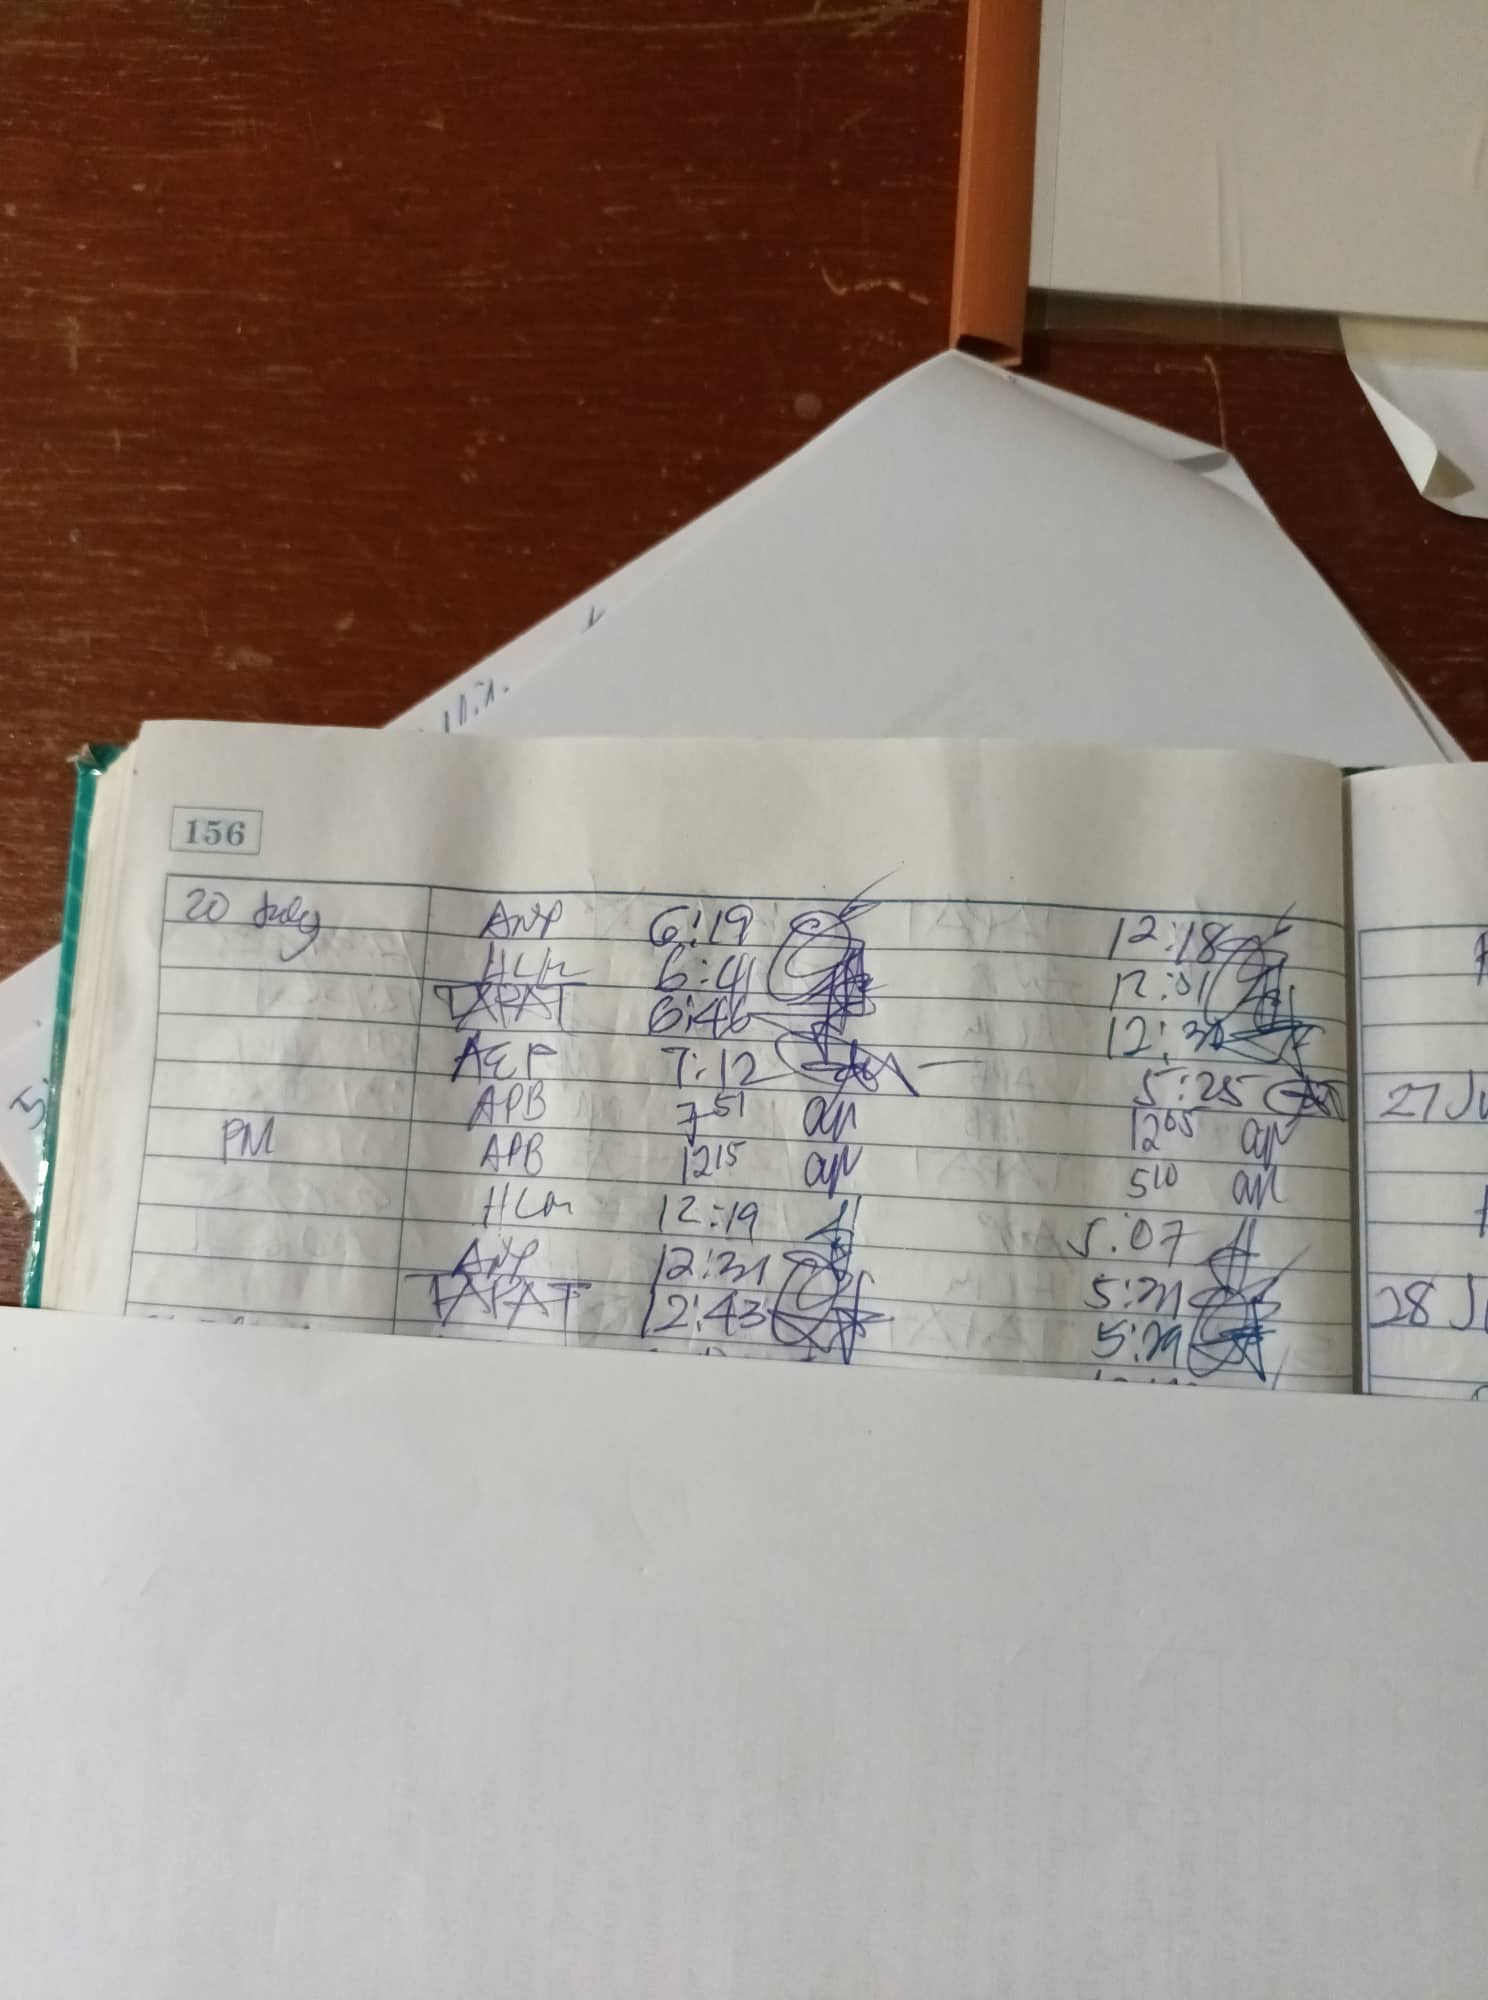 156
20 July ANP 6:19 12:18
HLM 6:41 12:01
TAPAT 6:46 12:30
AEP 7:12 5:25
APB 7 51 12 05
PM APB 12 15 5 10
HLM 12:19 5:07
ANP 12:31 5:31
TAPAT 12:43 5:29
27 Ju
28 J